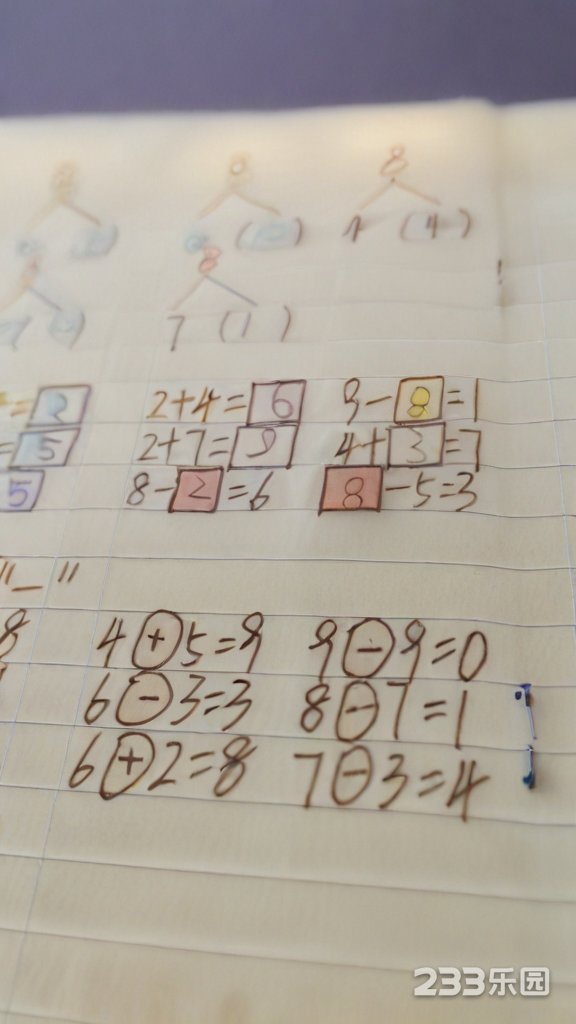 8 8 8
( ) ( ) 4 (4)
8 8
7 (1)
= 2 2+4=6 9-8=1
= 5 2+7=9 4+3=7
5 8-2=6 8-5=3
"-"
8 4+5=9 9-9=0
6-3=3 8-7=1
6+2=8 7-3=4
233乐园